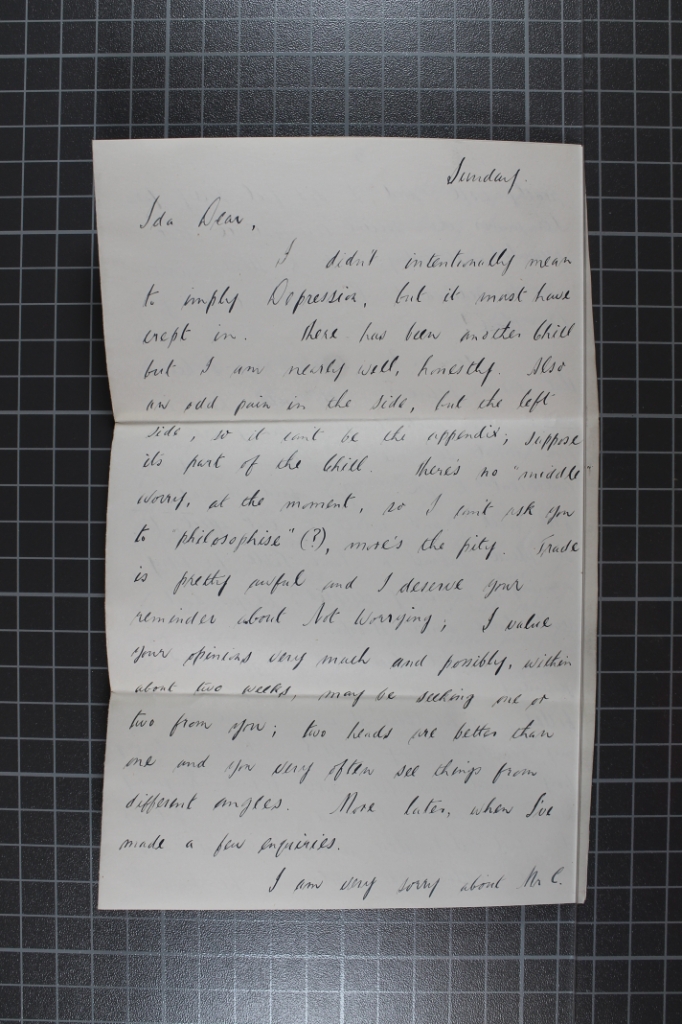 Sunday.
Ida Dear,
I didn't intentionally mean
to imply Depression, but it must have
crept in. There has been another Chill
but I am nearly well, honestly. Also
an odd pain in the side, but the left
side, so it can't be the appendix; suppose
its part of the Chill. There's no "middle"
worry, at the moment, so I can't ask you
to "philosophise" (?), more's the pity. Trade
is pretty awful and I deserve your
reminder about Not Worrying; I value
your opinions very much and possibly, within
about two weeks, may be seeking one or
two from you; two heads are better than
one and you very often see things from
different angles. More later, when I've
made a few enquiries.
I am very sorry about Mr C.